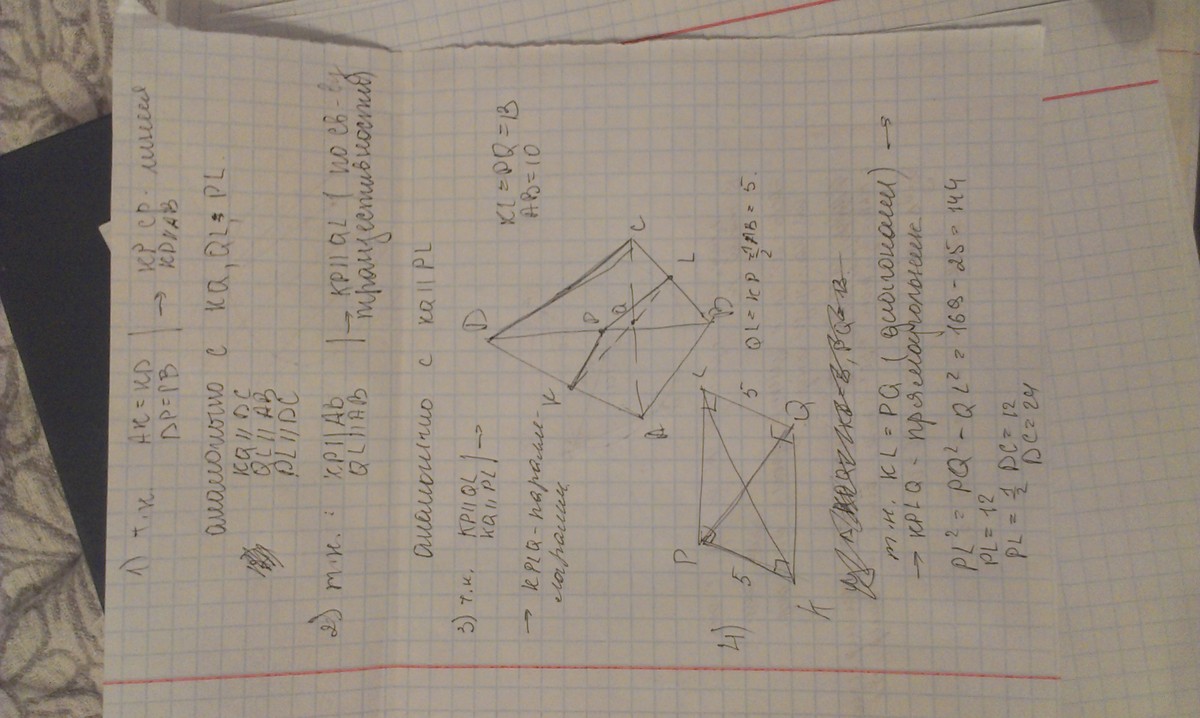 1) т.к. AK=KD → KP ср. линия
DP=PB KP∥AB
аналогично с KQ, QL, PL.
KQ∥DC
QL∥AB
PL∥DC
2) т.к.: KP∥AB → KP∥QL (по св-ву
QL∥AB транзитивности)
аналогично с KQ∥PL
3) т.к. KP∥QL →
KQ∥PL
→ KPLQ - паралле-
лограмм
D
K
P
Q
C
A
L
B
KL=PQ=13
AB=10
4)
P
L
5
5
K
Q
QL=KP=½AB=5.
т.к. KL=PQ (диагонали) →
→ KPLQ - прямоугольник
PL²=PQ²-QL²=169-25=144
PL=12
PL=½DC=12
DC=24